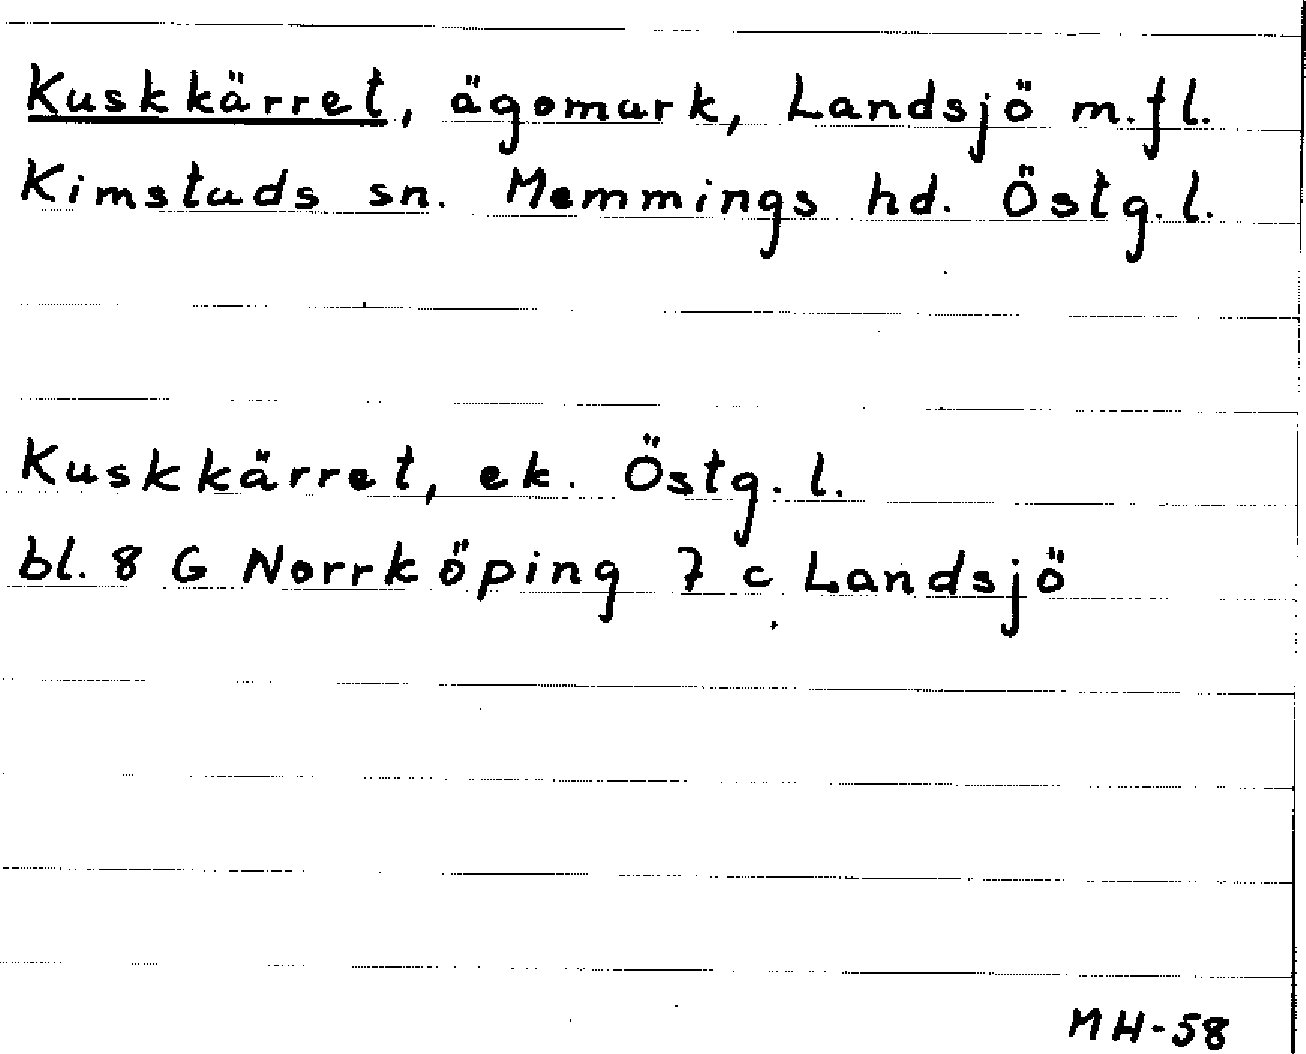 Kuskkärret, ägomark, Landsjö m.fl.
Kimstads sn. Memmings hd. Östg.l.
Kuskkärret, ek. Östg.l.
bl. 8 G Norrköping 7 c Landsjö
MH-58